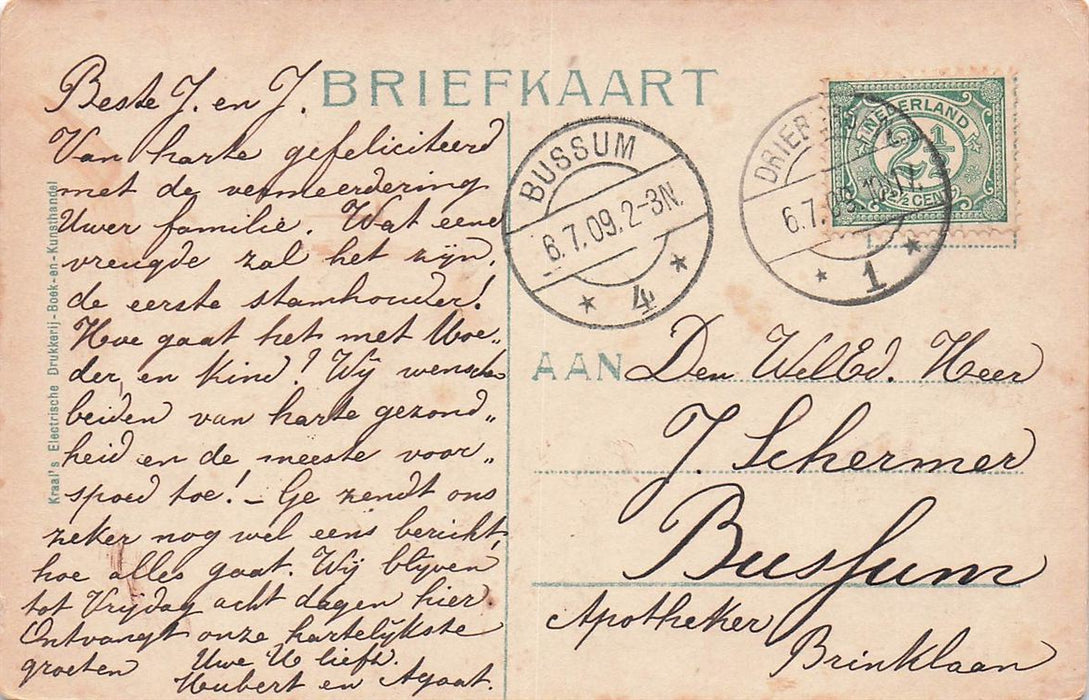 BRIEFKAART
Beste J. en J.
Van harte gefeliciteerd
met de vermeerdering
Uwer familie. Wat eene
vreugde zal het zijn,
de eerste stamhouder!
Hoe gaat het met Moe„
der, en kind! Wij wensche
beiden van harte gezond„
heid en de meeste voor„
spoed toe! - Ge zendt ons
zeker nog wel eens bericht,
hoe alles gaat. Wij blijven
tot Vrijdag acht dagen hier
Ontvangt onze hartelijkste
groeten Uwe U liefh.
Hubert en Agaat.
Kraal's Electrische Drukkerij-Boek-en-Kunsthandel
BUSSUM
6.7.09.2-3N.
4
DRIEB
6.7.
1
NEDERLAND
2½
2½ CEN
AAN Den WelEd. Heer
J. Schermer
Bussum
Apotheker
Brinklaan